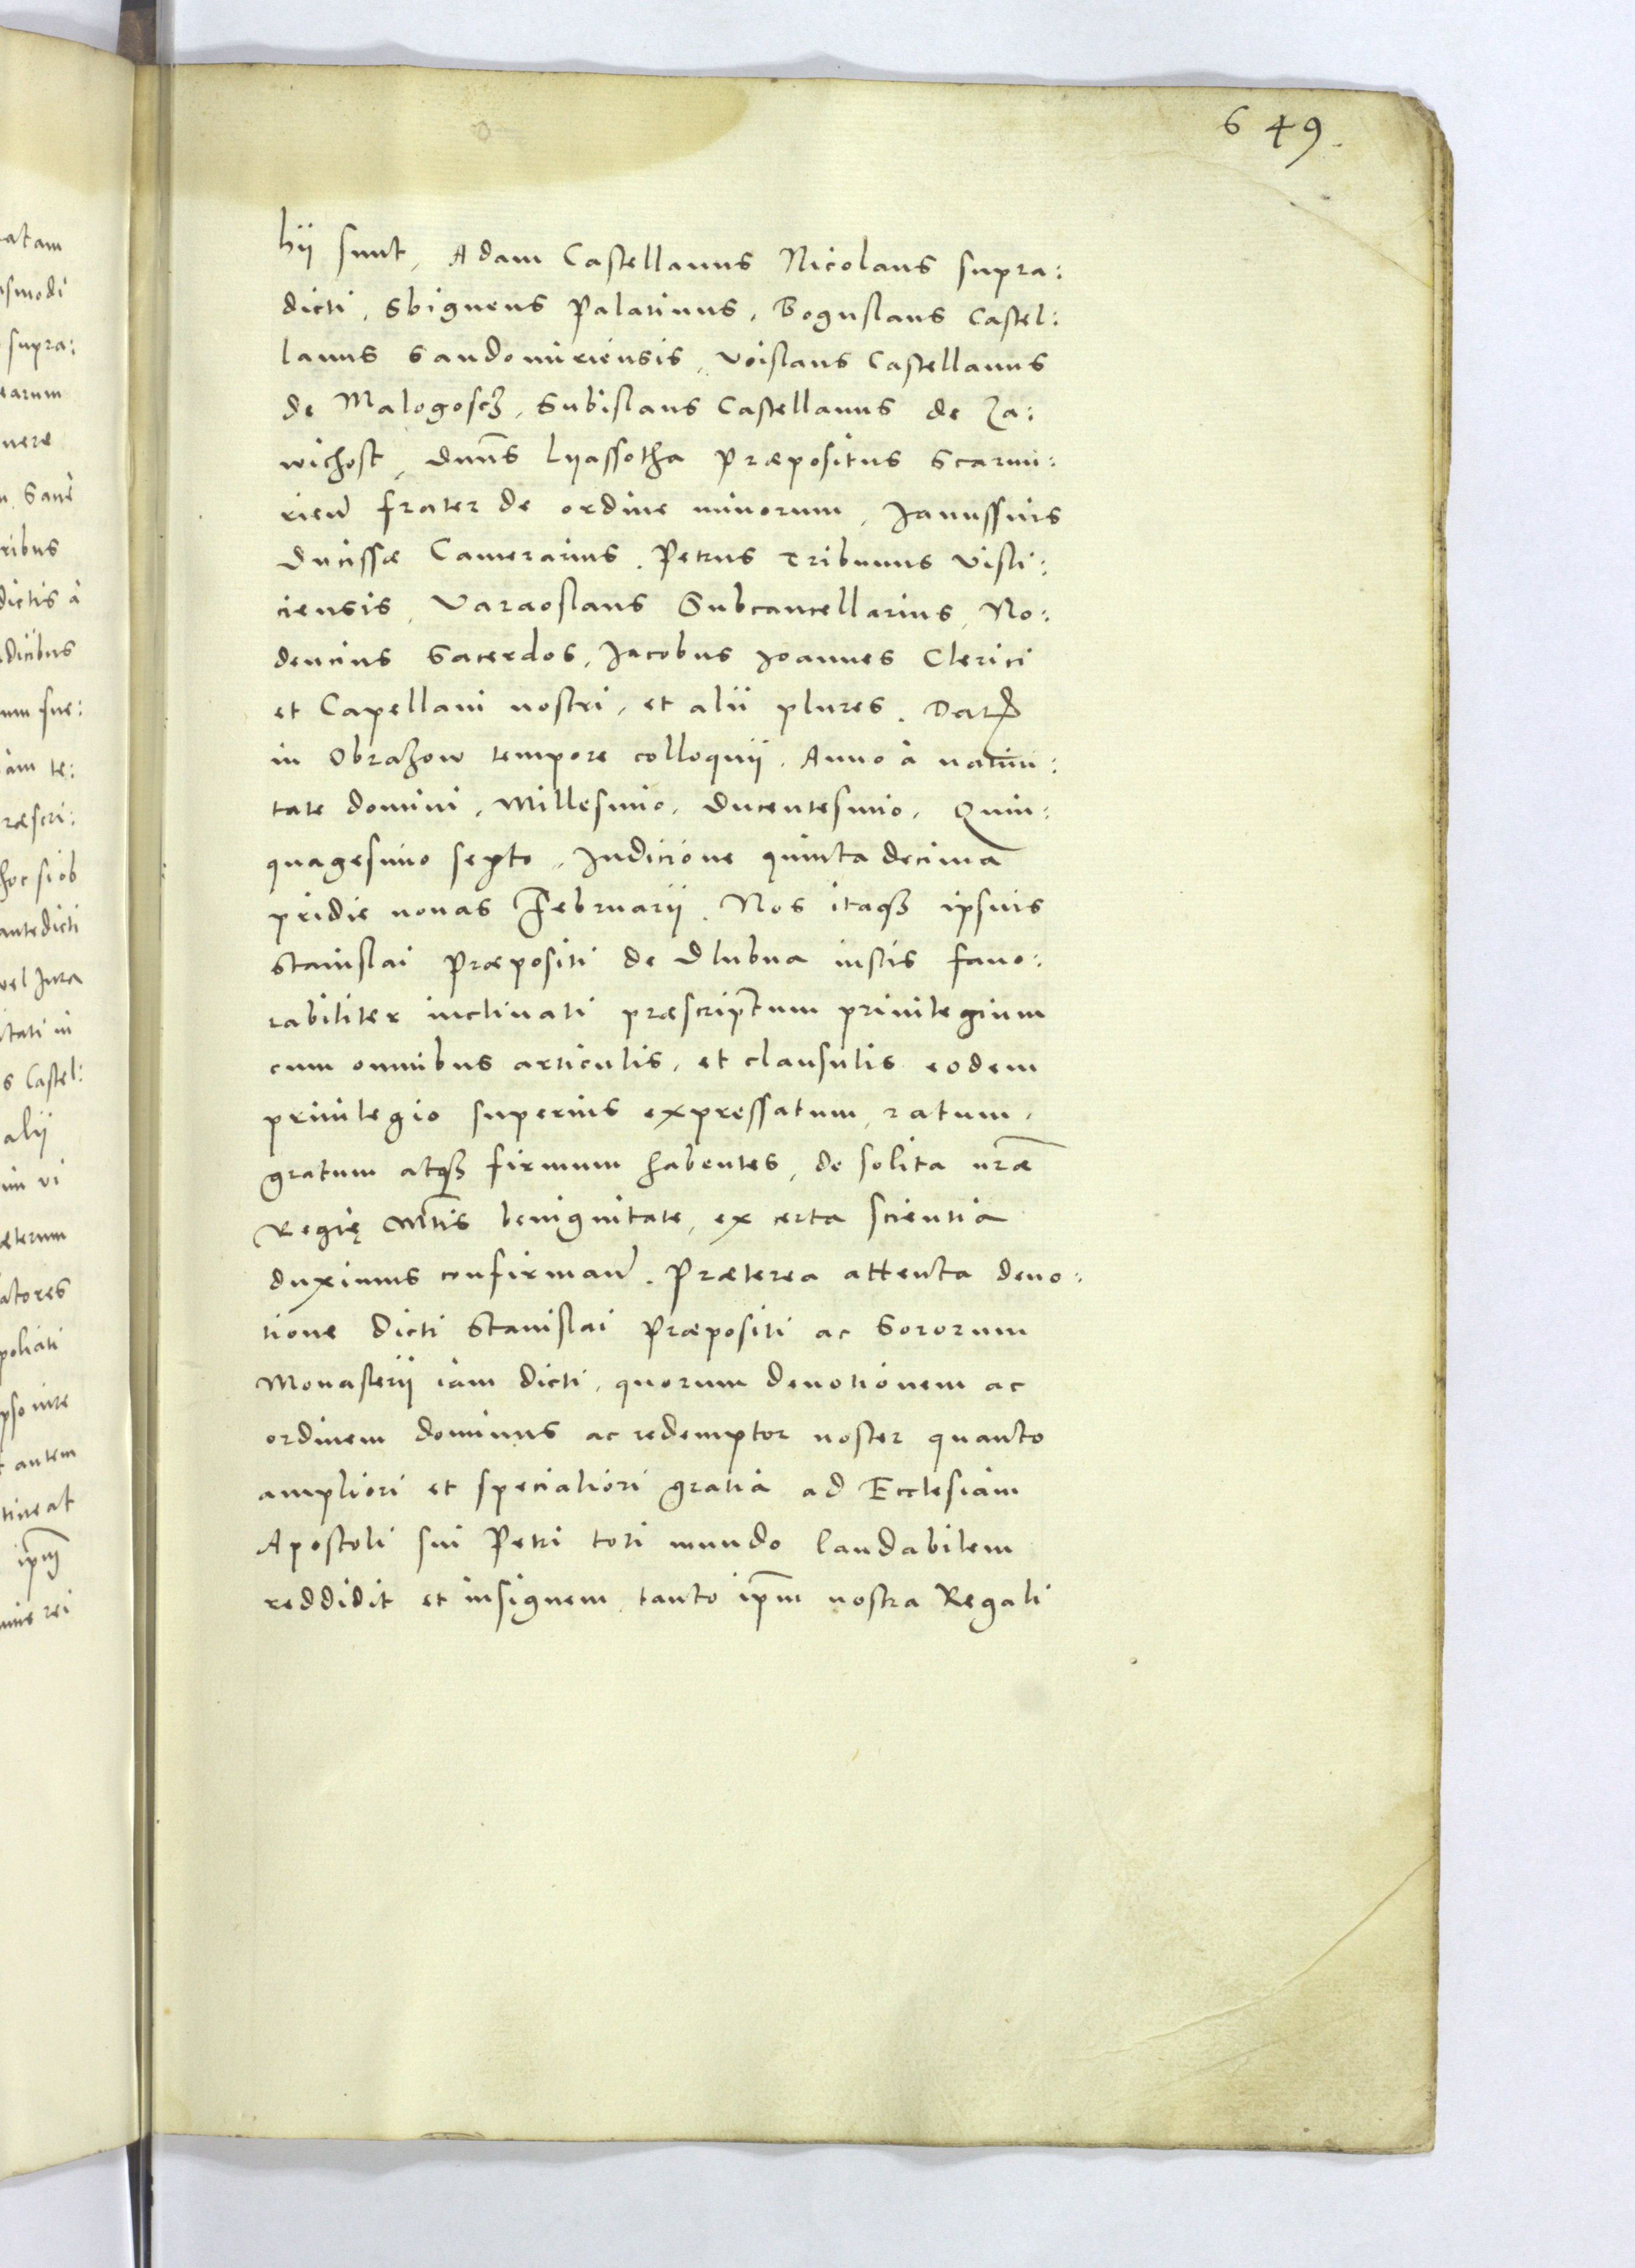 649.
hij sunt, Adam Castellanus Nicolaus supra:
dicti, Sbigneus Palatinus, Boguslaus Castel:
lanus Sandomiriensis, Voislaus Castellanus
de Malogoscz, Subislaus Castellanus de Za:
wichost, dnns Lyassotha Præpositus Scarmi:
rien frater de ordine minorum, Janussius
Ducissæ Camerarius. Petrus Tribunus Visli:
ciensis, Varaoslaus Subcancellarius, No:
dencius Sacerdos, Jacobus Joannes Clerici
et Capellani nostri, et alii plures. Dat
in Obrazow tempore colloquij. Anno à nativi:
tate domini, Millesimo, ducentesimo, Quin:
quagesimo septo, Indicione quinta decima
pridie nonas Februarij. Nos itaqz ipsius
Stanislai Præpositi de Dlubna iustis fauo:
rabiliter inclinati præscriptum priuilegium
cum omnibus articulis, et clausulis eodem
priuilegio superius expressatum, ratum,
gratum atqz firmum habentes, de solita nræ
Regię Mtis benignitate, ex certa scientia
duximus confirman. Præterea attenta deuo:
tione dicti Stanislai Præpositi ac Sororum
Monasterij iam dicti, quorum deuotionem ac
ordinem dominus ac redemptor noster quanto
ampliori et specialiori gratia ad Ecclesiam
Apostoli sui Petri toti mundo laudabilem
reddidit et insignem, tanto ipm nostra Regali
atam
smodi
supra:
earum
uere
Sane
ribus
dictis a
dicibus
um sue:
iam te:
ræscri:
hoc si ob
antedicti
vel Jura
itati in
s Castel:
alij
im vi
æterum
atores
poliati
pso iure
autem
tineat
ipm